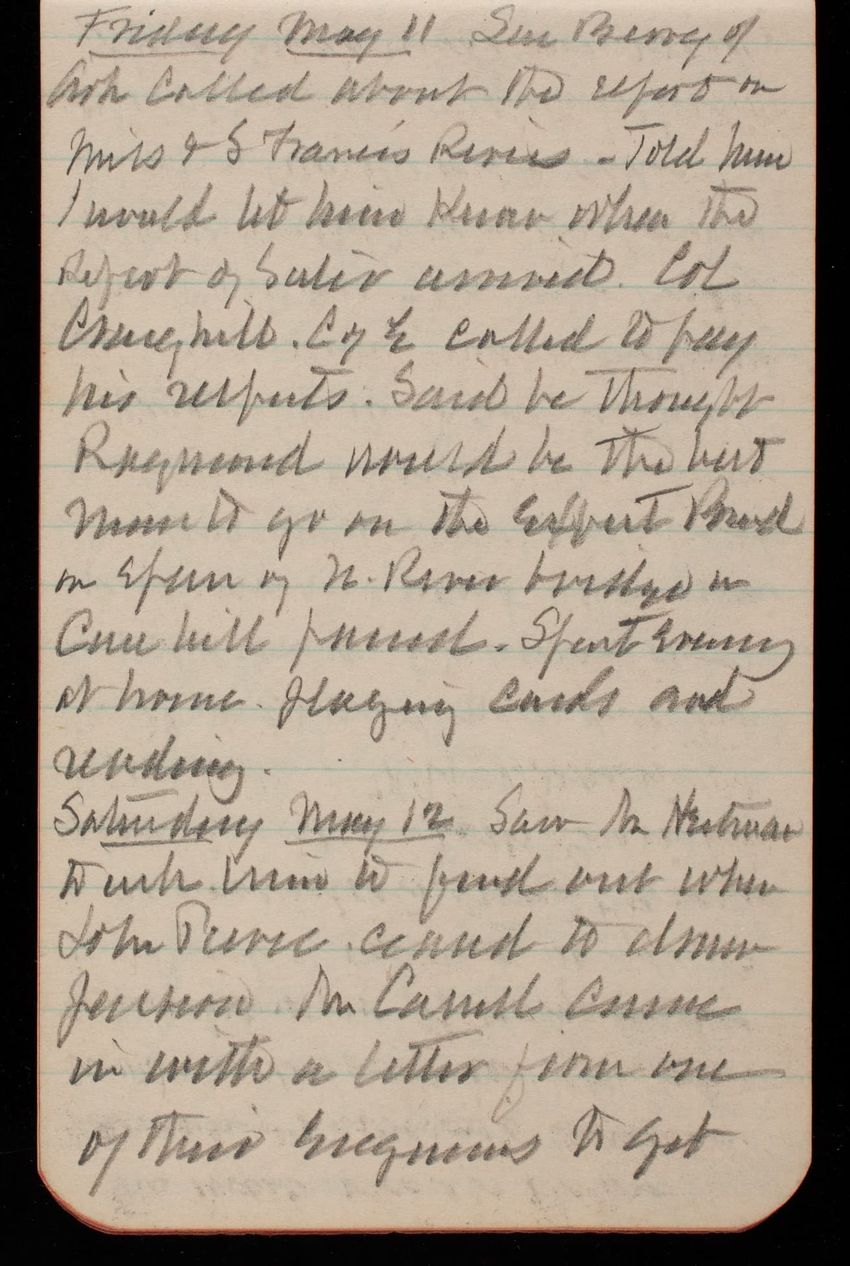 Friday May 11 Sen Berry of
Ark called about the report on
Miss & S Francis Rivers - Told him
I would let him Know when the
Report of Suter arrived. Col
Craighill. C of E called to pay
his respects. Said he thought
Raymond would be the best
man to go on the Expert Board
on Span of N. River bridge in
Case bill passed. Spent Evening
at home. playing cards and
reading.
Saturday May 12 Saw Mr
to ask him to find out when
John Pierce ceased to draw
pension. Mr Carroll came
in with a letter from one
of their Engineers to get